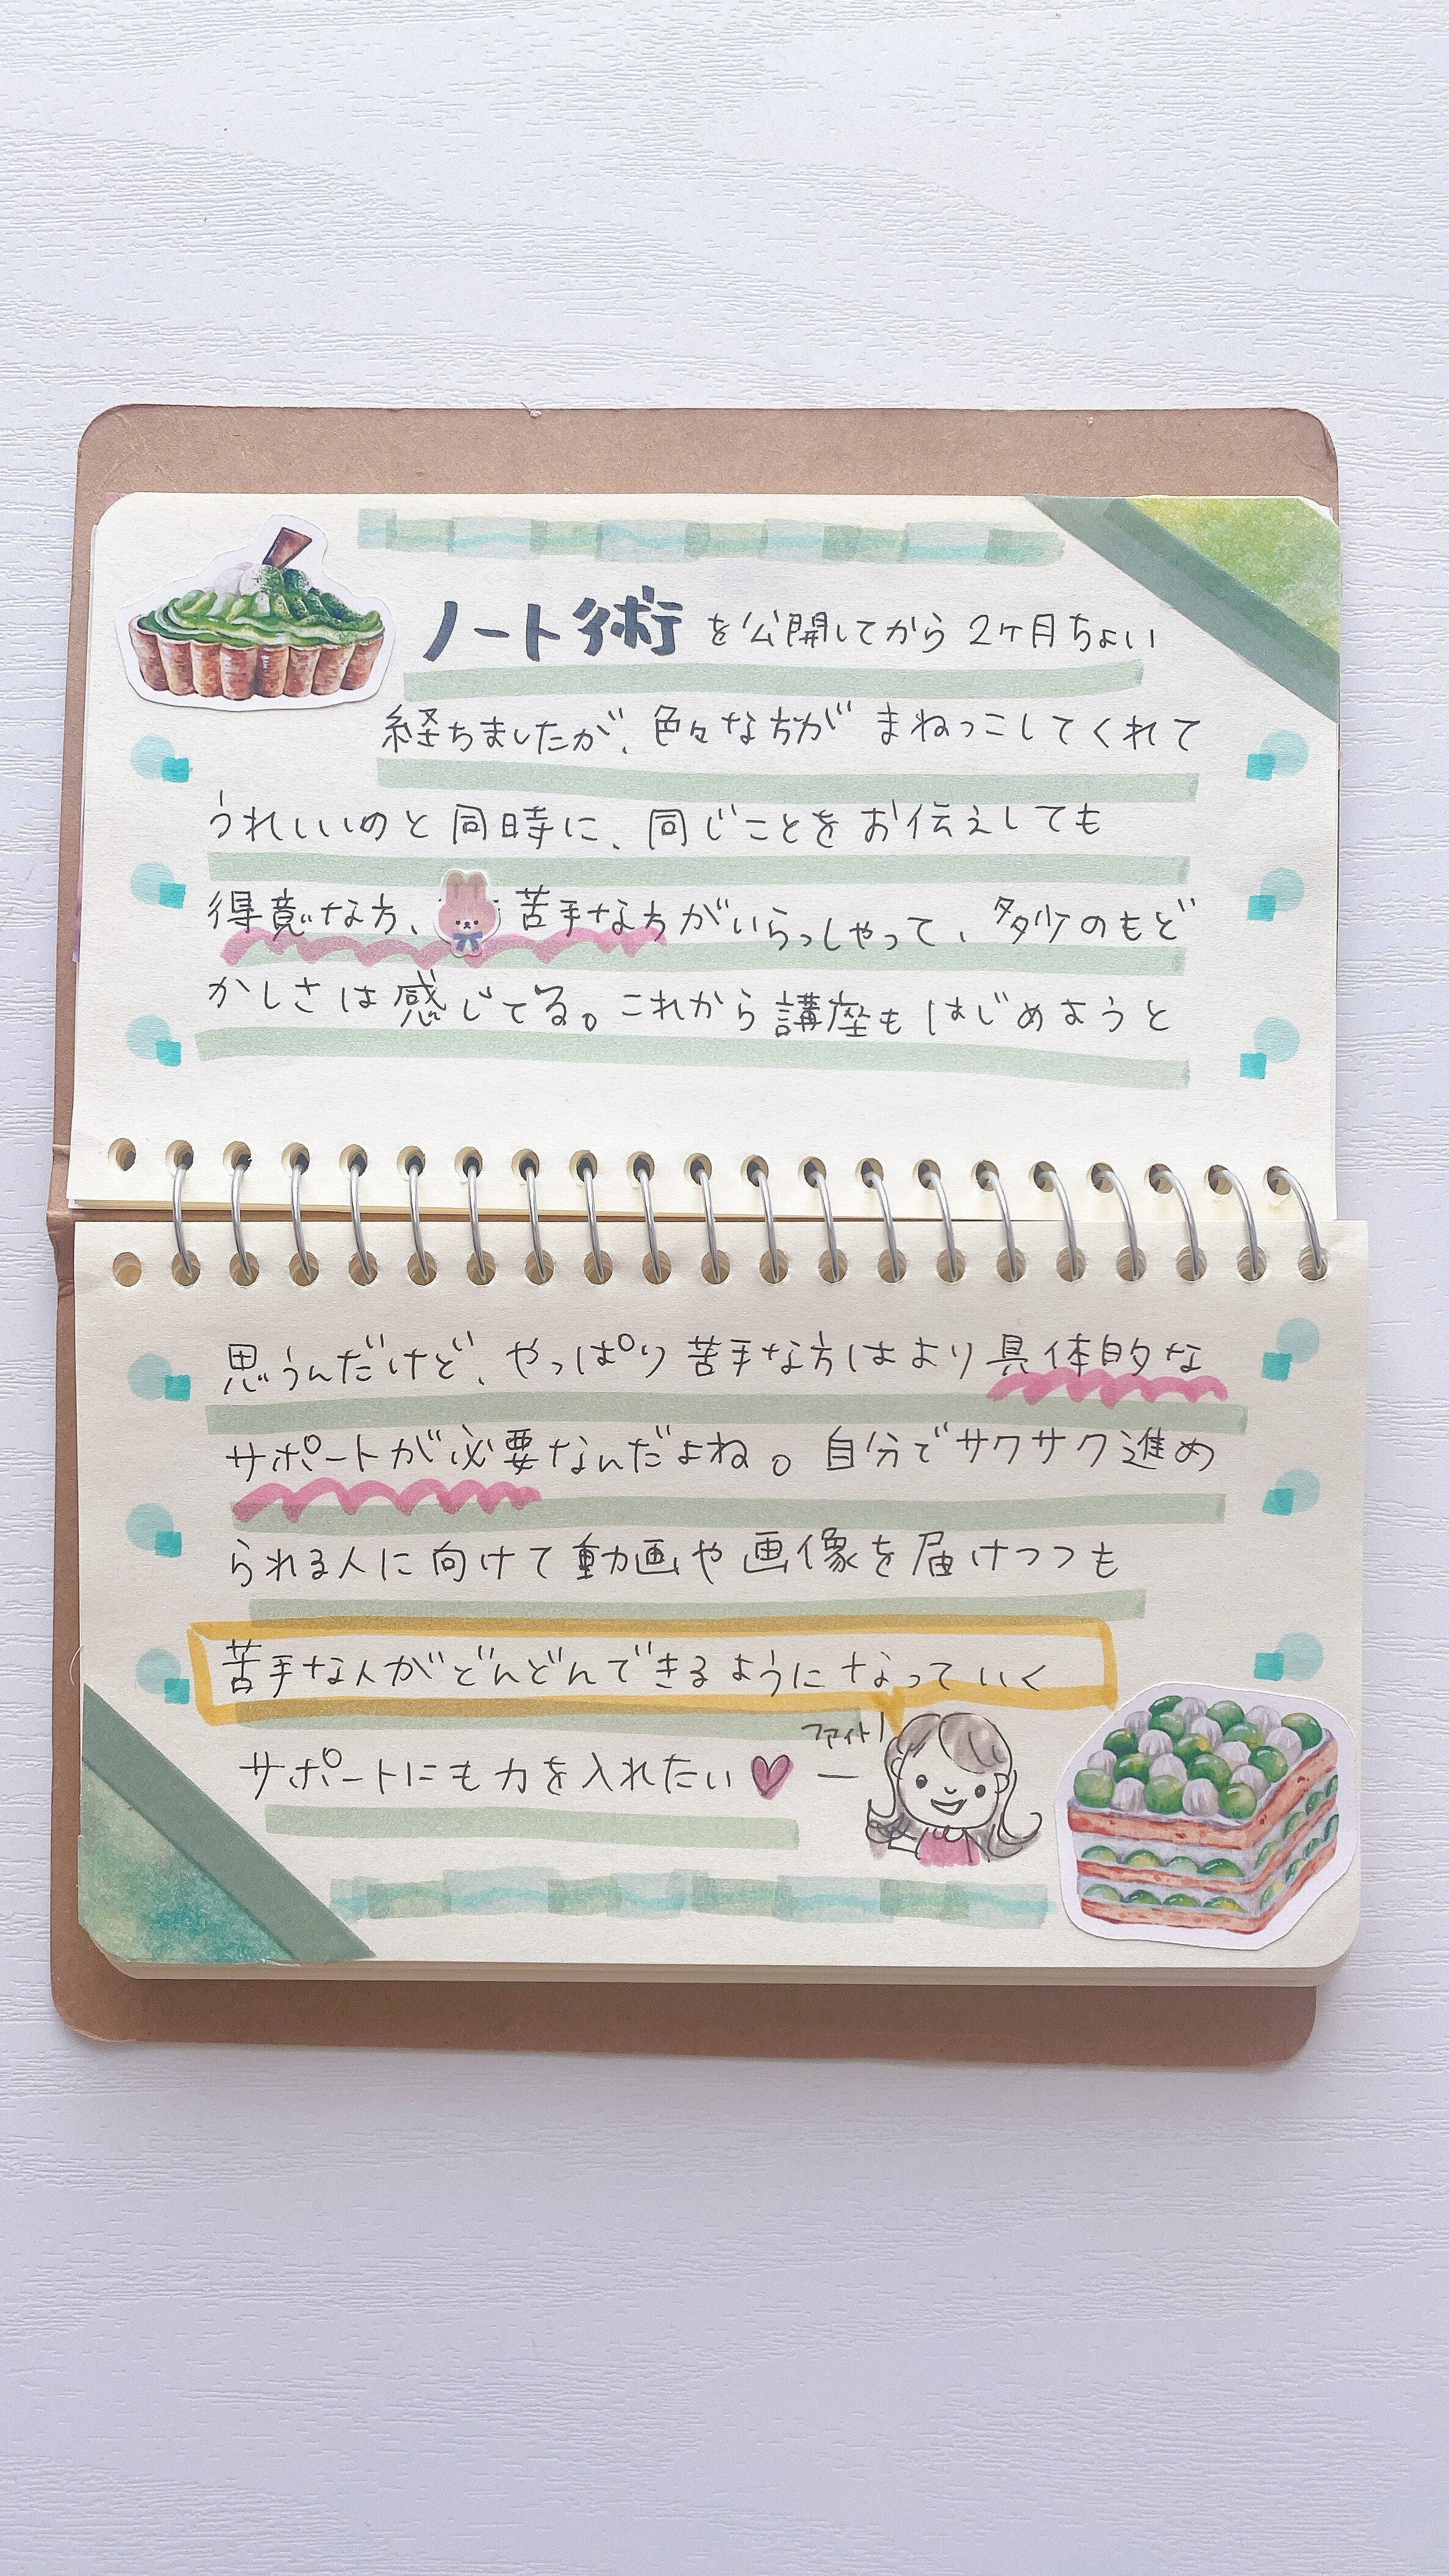 ノート術を公開してから2ヶ月ちょい
経ちましたが、色々な方がまねっこしてくれて
うれしいのと同時に、同じことをお伝えしても
得意な方、苦手な方がいらっしゃって、多少のもど
かしさは感じてる。これから講座もはじめようと
思うんだけど、やっぱり苦手な方はより具体的な
サポートが必要なんだよね。自分でサクサク進め
られる人に向けて動画や画像を届けつつも
苦手な人がどんどんできるようになっていく
ファイト!
サポートにも力を入れたい♡ー